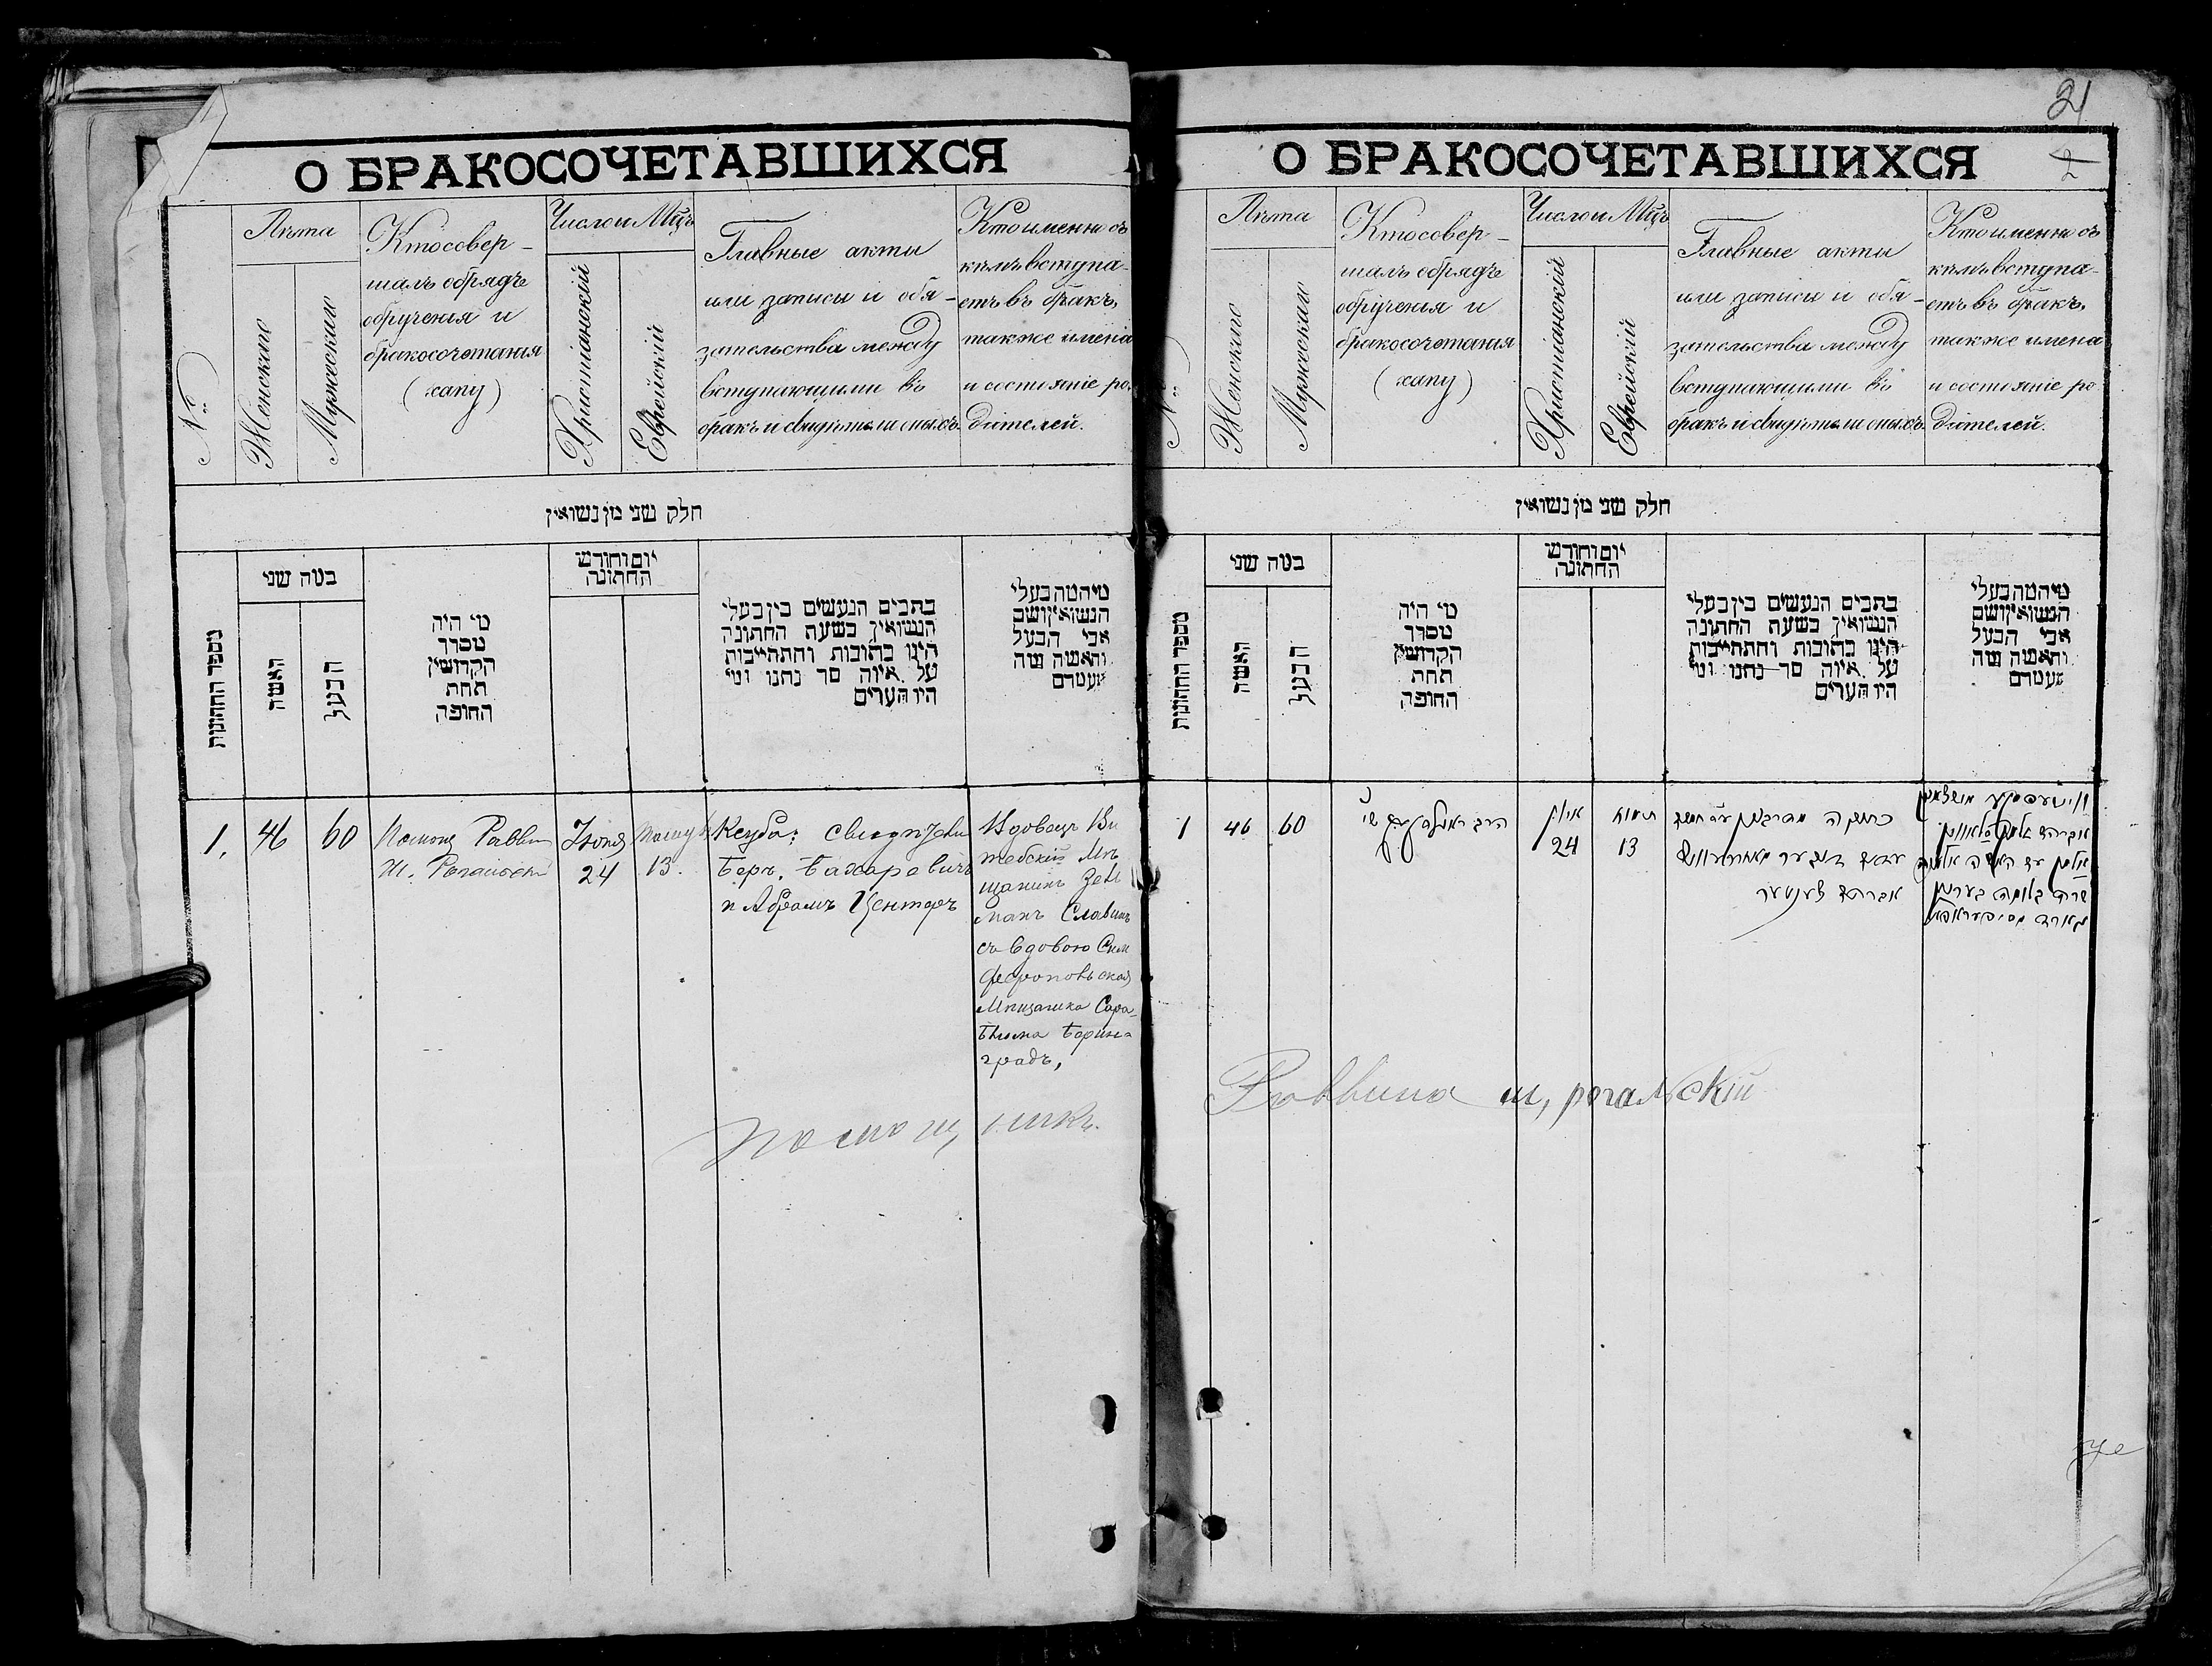 О БРАКОСОЧЕТАВШИХСЯ
№
Лѣта
Женскаго
Мужескаго
Кто совер-
шалъ обрядъ
обрученія и
бракосочетанія
(хапу)
Число и Мц҃ъ
Христіанскій
Еврейскій
Главные акты
или записи и обя-
зательства между
вступающими въ
бракъ и свидѣтели оныхъ
Кто именно съ
кѣмъ вступа-
етъ въ бракъ,
также имена
и состояніе ро-
дителей.
חלק שני מן נשואין
מספר החתונות
כמה שני
האשה
הבעל
מי היה
מסדר
הקדושין
תחת
החופה
יום וחודש
החתונה
כתבים הנעשים בין בעלי
הנשואין בשעת החתונה
היינו כתובות והתחייבות
על איזה סך נתנו ומי
היו העדים
מי המה בעלי
הנשואין ושם
אבי הבעל
והאשה מה
מעמדם
1.
46
60
Помощ Раввин
Ш. Рогальскій
Іюня
24
13.
Кетуба: свидѣтели
Беръ
и Абрамъ Центеръ
Вдовецъ Ви
тебскій Мѣ
щанинъ Зель
манъ Славинъ
съ вдовою Сим
феропольская
Мѣщанка Сара
Блюма Берин
градъ,
Помощникъ
21
2
О БРАКОСОЧЕТАВШИХСЯ
№
Лѣта
Женскаго
Мужескаго
Кто совер-
шалъ обрядъ
обрученія и
бракосочетанія
(хапу)
Число и Мц҃ъ
Христіанскій
Еврейскій
Главные акты
или записи и обя-
зательства между
вступающими въ
бракъ и свидѣтели оныхъ
Кто именно съ
кѣмъ вступа-
етъ въ бракъ,
также имена
и состояніе ро-
дителей.
חלק שני מן נשואין
מספר החתונות
כמה שני
האשה
הבעל
מי היה
מסדר
הקדושין
תחת
החופה
יום וחודש
החתונה
כתבים הנעשים בין בעלי
הנשואין בשעת החתונה
היינו כתובות והתחייבות
על איזה סך נתנו ומי
היו העדים
מי המה בעלי
הנשואין ושם
אבי הבעל
והאשה מה
מעמדם
1
46
60
הרב
24
תמוז
13
אברהם צענטער
וויטעבסקע
עם האשה
שרה בלומה
Раввина Ш, Рогальскій